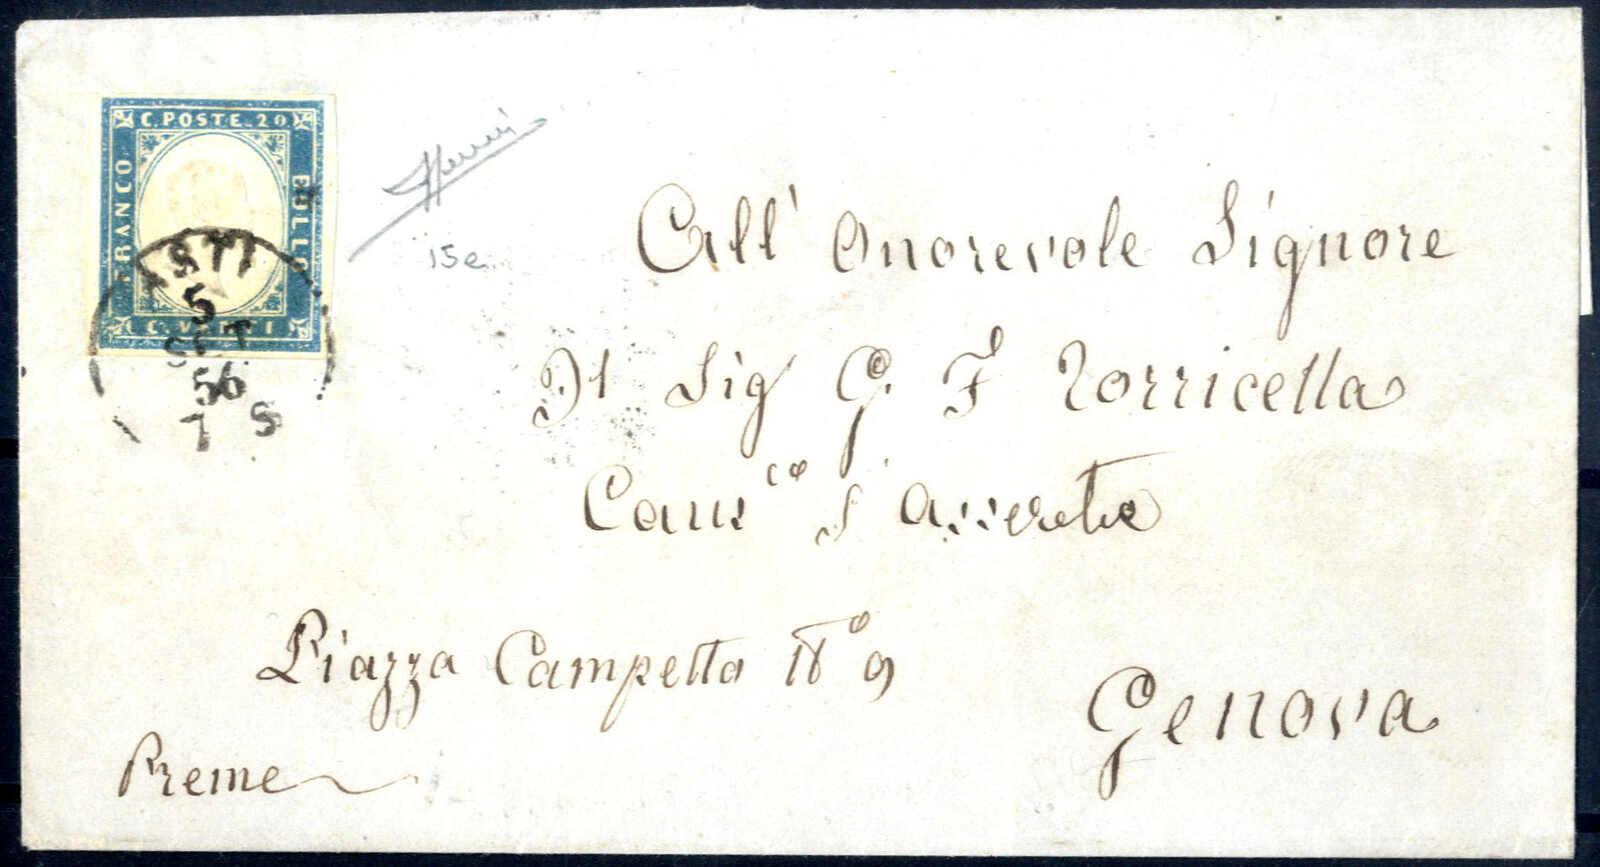 C. POSTE. 20
FRANCO
BOLLO
C. VENTI
ASTI
5
SET
56
7 S
15e
All' Onorevole Signore
Il Sig G. F Torricella
Piazza Campetto N° 9
Genova
Preme